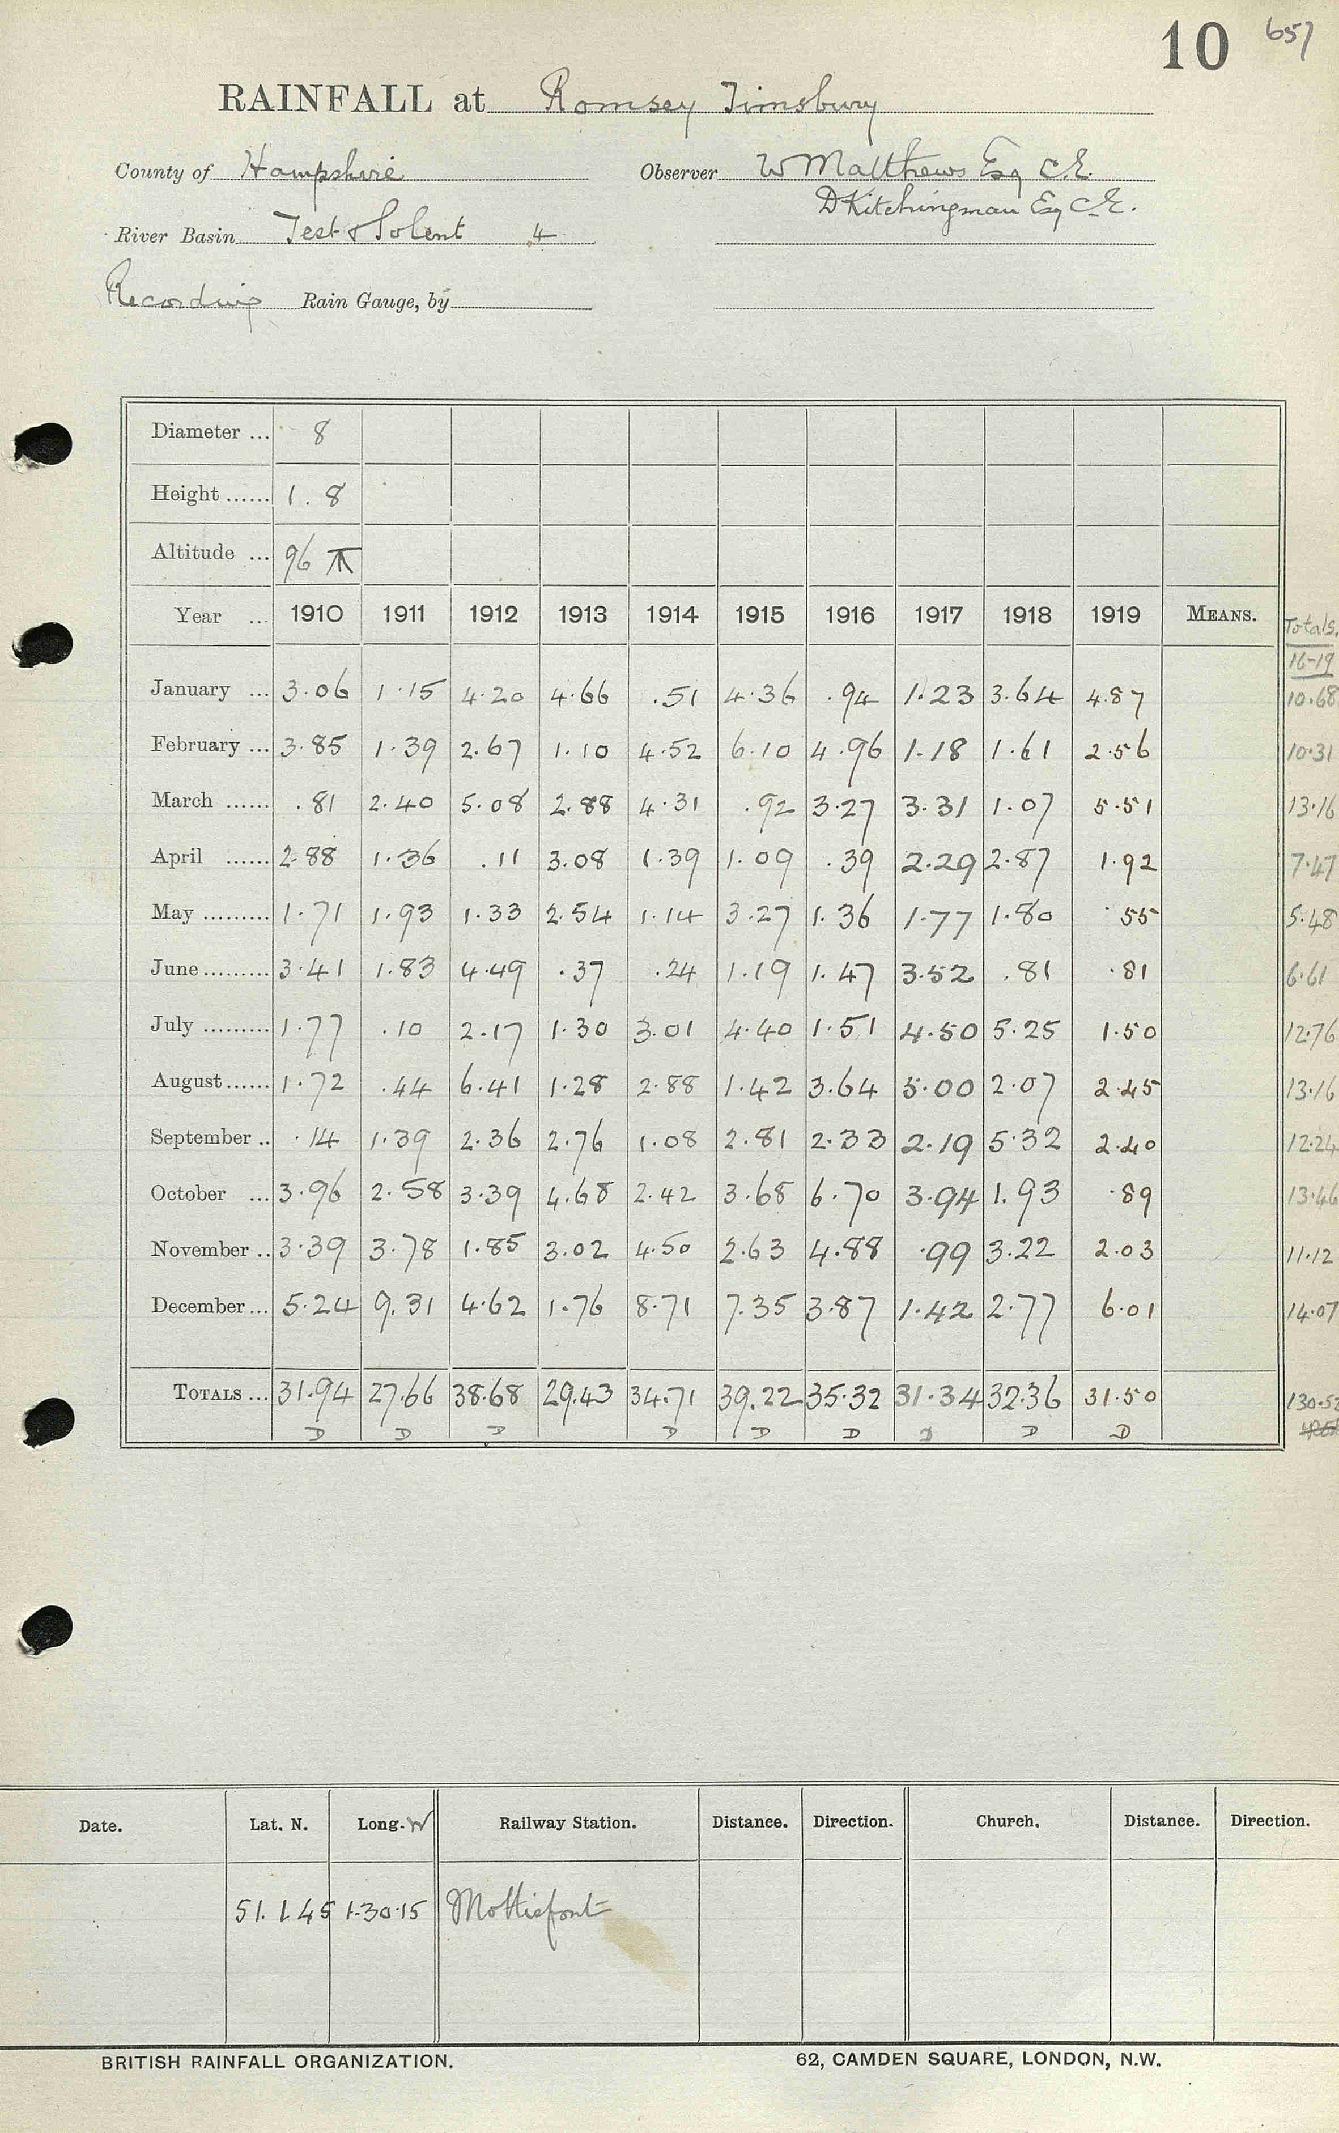 10 657
RAINFALL at Romsey Timsbury
County of Hampshire Observer W Matthews Esq C.E.
D Kitchingman Esq C.E.
River Basin Test & Solent 4
Recording Rain Gauge, by
Diameter ... 8
Height ...... 1.8
Altitude ... 96
Year ... 1910 1911 1912 1913 1914 1915 1916 1917 1918 1919 MEANS. Totals.
16-19
January ... 3.06 1.15 4.20 4.66 .51 4.36 .94 1.23 3.64 4.87 10.68
February ... 3.85 1.39 2.67 1.10 4.52 6.10 4.96 1.18 1.61 2.56 10.31
March ...... .81 2.40 5.08 2.88 4.31 .92 3.27 3.31 1.07 5.51 13.16
April ...... 2.88 1.36 .11 3.08 1.39 1.09 .39 2.29 2.87 1.92 7.47
May ......... 1.71 1.93 1.33 2.54 1.14 3.27 1.36 1.77 1.80 .55 5.48
June ......... 3.41 1.83 4.49 .37 .24 1.19 1.47 3.52 .81 .81 6.61
July ......... 1.77 .10 2.17 1.30 3.01 4.40 1.51 4.50 5.25 1.50 12.76
August ...... 1.72 .44 6.41 1.28 2.88 1.42 3.64 5.00 2.07 2.45 13.16
September .. .14 1.39 2.36 2.76 1.08 2.81 2.33 2.19 5.32 2.40 12.24
October ... 3.96 2.58 3.39 4.68 2.42 3.68 6.70 3.94 1.93 .89 13.46
November .. 3.39 3.78 1.85 3.02 4.50 2.63 4.88 .99 3.22 2.03 11.12
December ... 5.24 9.31 4.62 1.76 8.71 7.35 3.87 1.42 2.77 6.01 14.07
TOTALS ... 31.94 27.66 38.68 29.43 34.71 39.22 35.32 31.34 32.36 31.50 130.52
D D D D D D D D D
Date. Lat. N. Long. W Railway Station. Distance. Direction. Church. Distance. Direction.
51.1.45 1.30.15 Mottisfont
BRITISH RAINFALL ORGANIZATION. 62, CAMDEN SQUARE, LONDON, N.W.